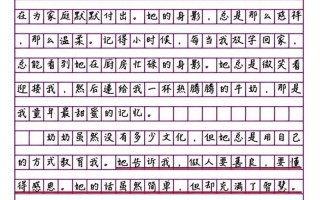 在为家庭默默付出。她的身影，总是那么慈祥
，那么温柔。记得小时候，每当我放学回家，
总能看到她在厨房忙碌的身影。她总是微笑着
迎接我，然后递给我一杯热腾腾的牛奶，那是
我童年最甜蜜的记忆。
奶奶虽然没有多少文化，但她总是用自己
的方式教育我。她告诉我，做人要善良，要懂
得感恩。她的话虽然简单，但却充满了智慧。